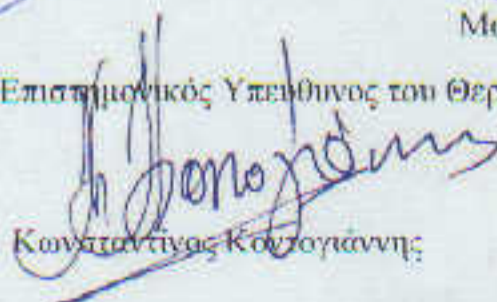 Επιστημονικός Υπεύθυνος του Θερ
Κωνσταντίνος Κοντογιάννης